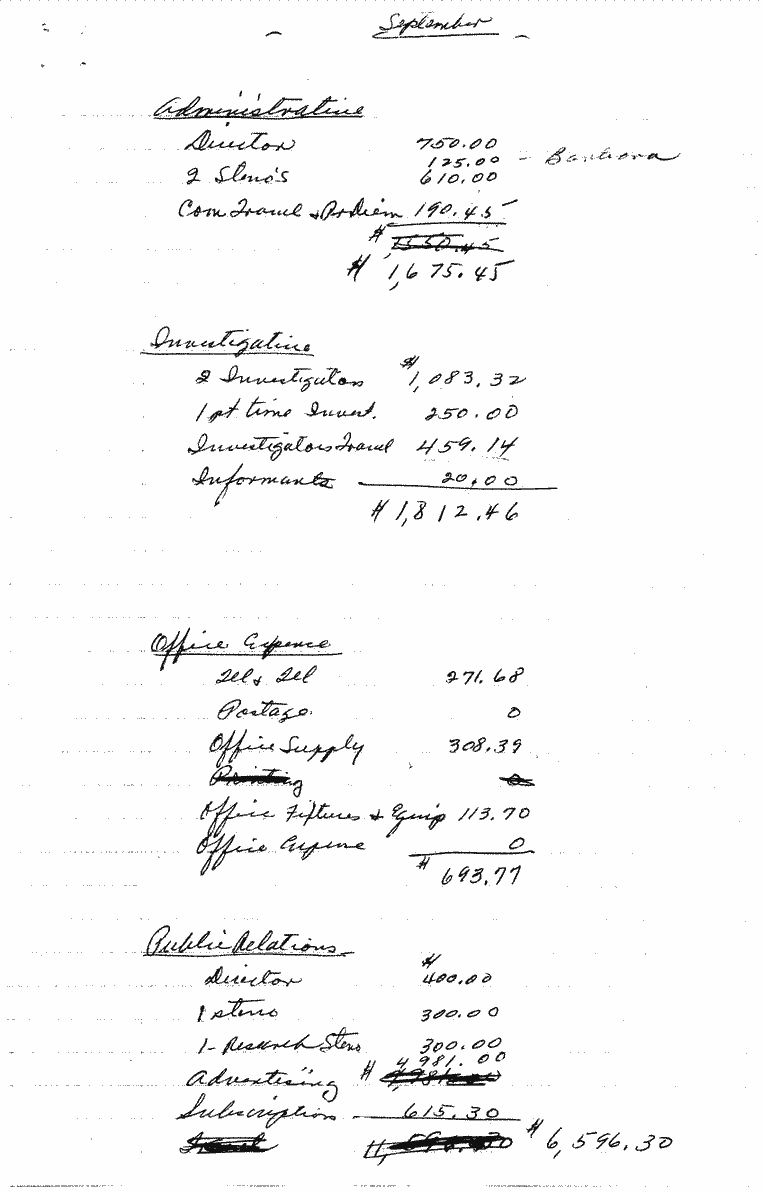 September
Administrative
Director 750.00
125.00 - Barbara
2 Steno's 610.00
Com Travel & PrDiem 190.45
$ 1,550.45
$ 1,675.45
Investigative
2 Investigators $1,083.32
1 pt time Invest. 250.00
Investigators Travel 459.14
Informants 20.00
$ 1,812.46
Office Expence
Tel & Tel 271.68
Postage 0
Office Supply 308.39
Printing 0
Office Fixtures & Equip 113.70
Office Expense 0
$ 693.77
Public Relations
Director $400.00
1 steno 300.00
1- Research Steno 300.00
4,981.00
Advertising $
Subscription 615.30
Travel $ 6,596.30